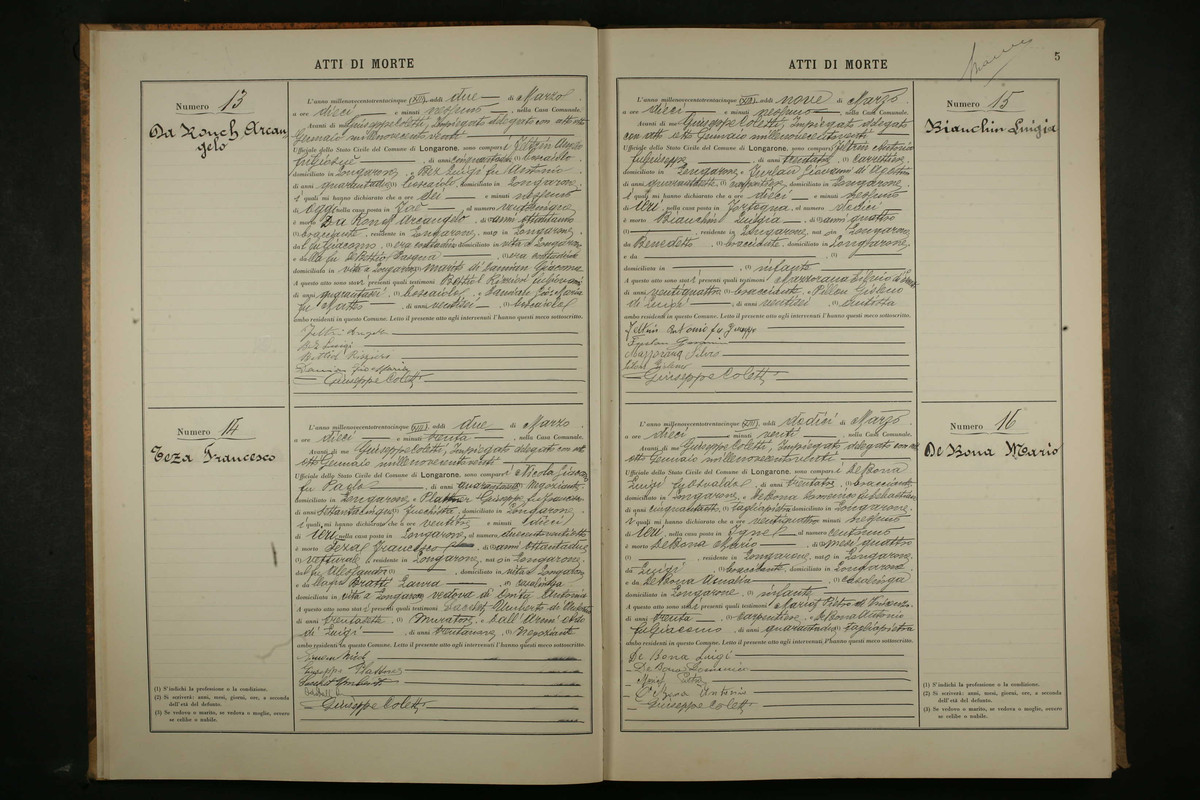 ATTI DI MORTE
Numero 13
Da Ronch Arcan
gelo
L'anno millenovecentotrentacinque (XIII), addì due di Marzo
a ore dieci e minuti nessuno, nella Casa Comunale.
Avanti di me Giuseppe Coletti, Impiegato delegato con atto
Gennaio millenovecentoventi
Ufficiale dello Stato Civile del Comune di Longarone, sono comparsi
di anni boscaiolo
domiciliato in Longarone, e Bez Luigi fu Antonio
di anni quarantadue (1) boscaiolo, domiciliato in Longarone
i quali mi hanno dichiarato che a ore sei e minuti nessuno
di Oggi nella casa posta in al numero
è morto Da Ronch Arcangelo, di (2) anni ottantuno
(1) bracciante, residente in Longarone, nato in Longarone
da fu Giacomo (1) domiciliato in vita a Longarone
e da fu Pasqua (1)
domiciliata in vita a Longarone marito di Damian Giacoma
A questo atto sono stati presenti quali testimoni
di anni (1) boscaiolo, e Damian Gio Maria
fu Matteo, di anni (1) boscaiolo
ambo residenti in questo Comune. Letto il presente atto agli intervenuti l'hanno questi meco sottoscritto.
Feltrin Angelo
Bez Luigi
Damian Gio Maria
Giuseppe Coletti
Numero 14
Teza Francesco
L'anno millenovecentotrentacinque (XIII), addì due di Marzo
a ore dieci e minuti trenta, nella Casa Comunale.
Avanti di me Giuseppe Coletti, Impiegato delegato con atto
otto Gennaio millenovecentoventi
Ufficiale dello Stato Civile del Comune di Longarone, sono comparsi
fu Paolo, di anni quarantanove negoziante
domiciliato in Longarone, e Plattner Giuseppe fu Francesco
di anni settantacinque (1) domiciliato in Longarone
i quali mi hanno dichiarato che a ore ventitre e minuti dieci
di Ieri, nella casa posta in Longarone, al numero
è morto Teza Francesco, di (2) anni ottantadue
(1) residente in Longarone, nato in Longarone
da fu Alessandro (1) domiciliato in vita a Longarone
e da Bratti Laura (1) casalinga
domiciliata in vita a Longarone vedovo di
A questo atto sono stati presenti quali testimoni Sacchet Umberto di
di anni trentasette (1) Muratore, e Dall'Armi
di Luigi, di anni trentanove (1) negoziante
ambo residenti in questo Comune. Letto il presente atto agli intervenuti l'hanno questi meco sottoscritto.
Giuseppe Plattner
Sacchet Umberto
Giuseppe Coletti
(1) S'indichi la professione o la condizione.
(2) Si scriverà: anni, mesi, giorni, ore, a seconda
dell'età del defunto.
(3) Se vedovo o marito, se vedova o moglie, ovvero
se celibe o nubile.
ATTI DI MORTE
5
Numero 15
Bianchin Luigia
L'anno millenovecentotrentacinque (XIII), addì nove di Marzo
a ore dieci e minuti nessuno, nella Casa Comunale.
Avanti di me Giuseppe Coletti, Impiegato delegato
con atto otto Gennaio millenovecentoventi
Ufficiale dello Stato Civile del Comune di Longarone, sono comparsi Feltrin Antonio
fu Giuseppe, di anni (1) carrettiere
domiciliato in Longarone, e Furlan Giovanni di Agostino
di anni (1) carpentiere, domiciliato in Longarone
i quali mi hanno dichiarato che a ore dieci e minuti nessuno
di Ieri, nella casa posta in Fortogna, al numero dodici
è morta Bianchin Luigia, di (2) anni quattro
(1) residente in Longarone, nata in Longarone
da Benedetto (1) bracciante, domiciliato in Longarone
e da (1)
domiciliata in (3) infante
A questo atto sono stati presenti quali testimoni Mazzorana Silvio
di anni ventiquattro (1) bracciante, e
di Luigi, di anni (1) autista
ambo residenti in questo Comune. Letto il presente atto agli intervenuti l'hanno questi meco sottoscritto.
Feltrin Antonio fu Giuseppe
Furlan Giovanni
Mazzorana Silvio
Giuseppe Coletti
Numero 16
De Bona Mario
L'anno millenovecentotrentacinque (XIII), addì dodici di Marzo
a ore dieci e minuti venti, nella Casa Comunale.
Avanti di me Giuseppe Coletti, Impiegato delegato con atto
otto Gennaio millenovecentoventi
Ufficiale dello Stato Civile del Comune di Longarone, sono comparsi De Bona
Luigi fu Osvaldo, di anni trentatre (1) bracciante
domiciliato in Longarone, e De Bona Domenico fu Sebastiano
di anni (1) tagliapietra domiciliato in Longarone
i quali mi hanno dichiarato che a ore ventiquattro minuti nessuno
di Ieri, nella casa posta in Igne, al numero centouno
è morto De Bona Mario, di (2) mesi quattro
(1) residente in Longarone, nato in Longarone
da Luigi (1) bracciante, domiciliato in Longarone
e da De Bona Amalia (1) casalinga
domiciliata in Longarone (3) infante
A questo atto sono stati presenti quali testimoni Pietro di
di anni trenta (1) carpentiere, e De Bona Antonio
fu Giacomo, di anni (1) tagliapietra
ambo residenti in questo Comune. Letto il presente atto agli intervenuti l'hanno questi meco sottoscritto.
De Bona Luigi
De Bona Domenico
De Bona Antonio
Giuseppe Coletti
(1) S'indichi la professione o la condizione.
(2) Si scriverà: anni, mesi, giorni, ore, a seconda
dell'età del defunto.
(3) Se vedovo o marito, se vedova o moglie, ovvero
se celibe o nubile.